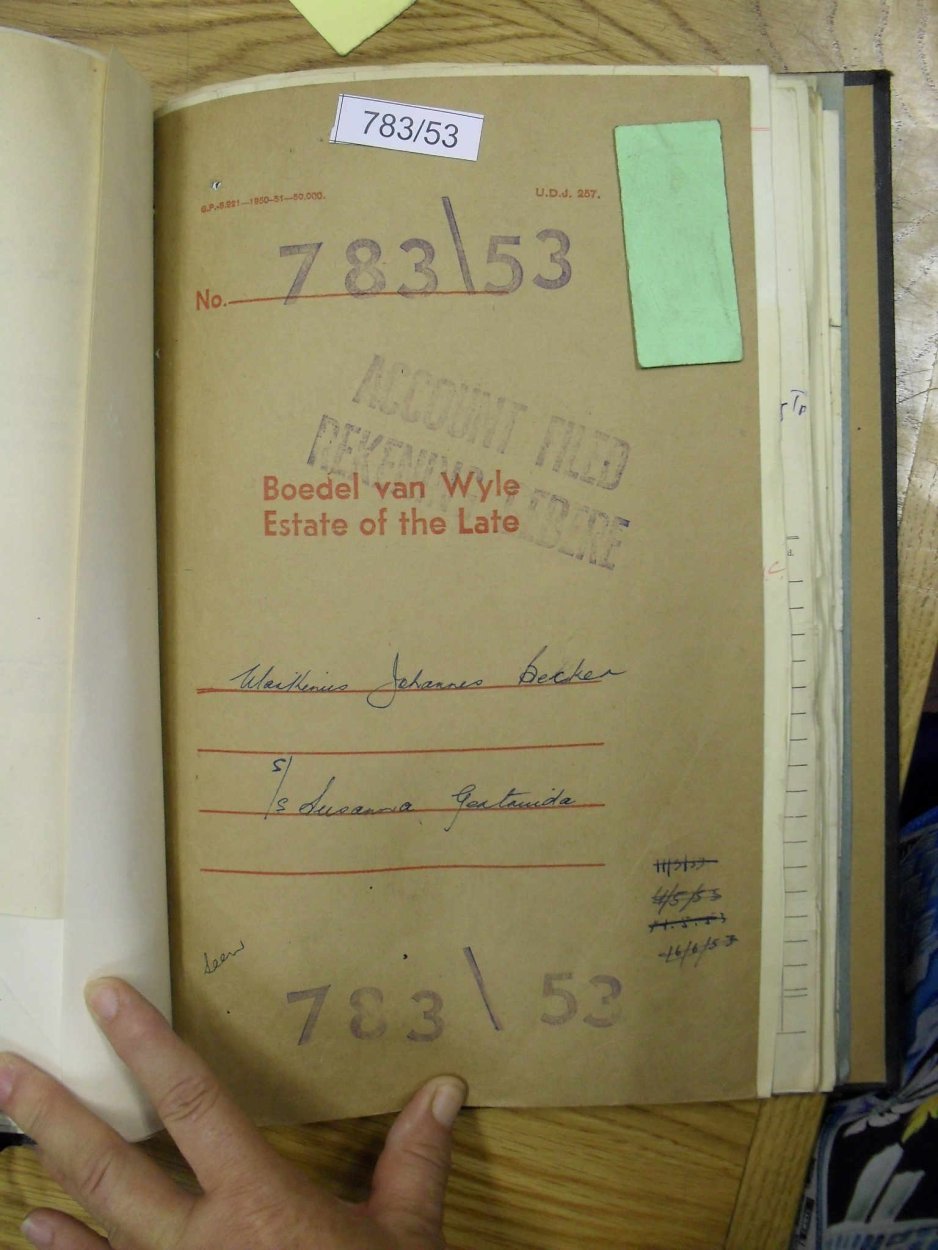 783/53
G.P.-S.921—1950-51—50,000.
U.D.J. 257.
No. 783\53
ACCOUNT FILED
REKENING GELEBERE
Boedel van Wyle
Estate of the Late
Johannes Becker
s/s Susanna Gertruida
11/3/53
4/5/53
16/6/53
Seen
783\53